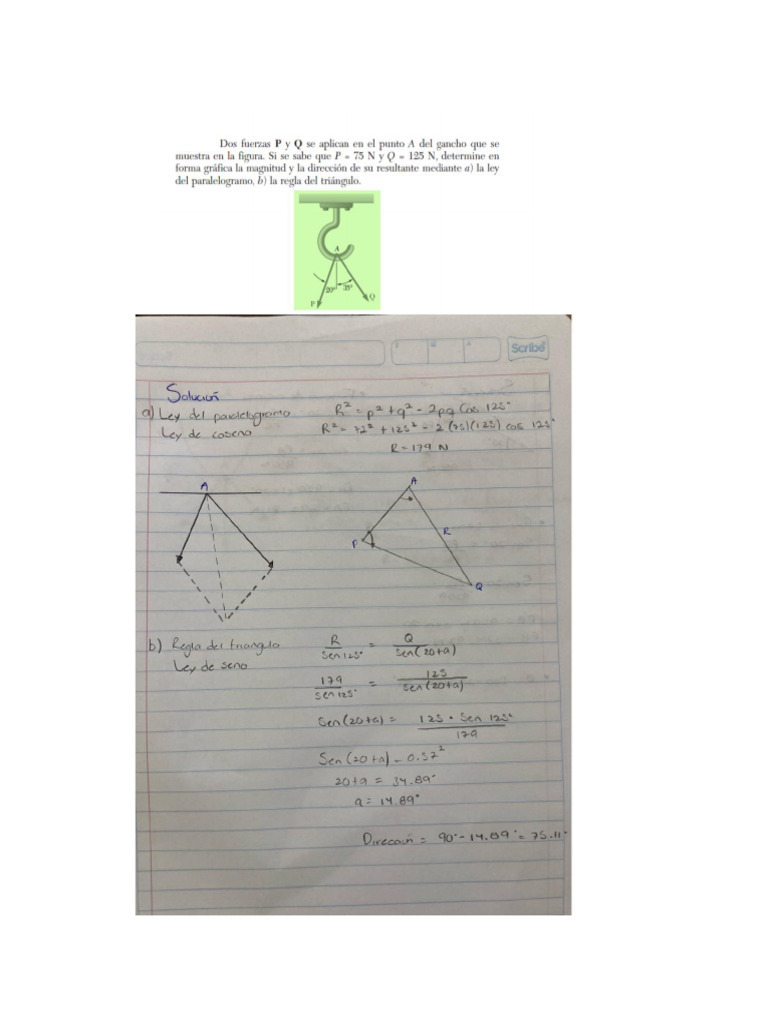 Dos fuerzas P y Q se aplican en el punto A del gancho que se
muestra en la figura. Si se sabe que P = 75 N y Q = 125 N, determine en
forma gráfica la magnitud y la dirección de su resultante mediante a) la ley
del paralelogramo, b) la regla del triángulo.
A
20° 35°
P Q
Scribe
Solución
a) Ley del paralelogramo R² = p² + q² - 2pq Cos 125°
Ley de coseno R² = 72² + 125² - 2 (75)(125) cos 125°
R = 179 N
A A
P R
Q
b) Regla del triangulo R/Sen 125° = Q/Sen(20+a)
Ley de seno
179/Sen 125° = 125/Sen(20+a)
Sen(20+a) = 125 * Sen 125°/179
Sen(20+a) = 0.57²
20+a = 34.89°
a = 14.89°
Dirección = 90° - 14.89° = 75.11°